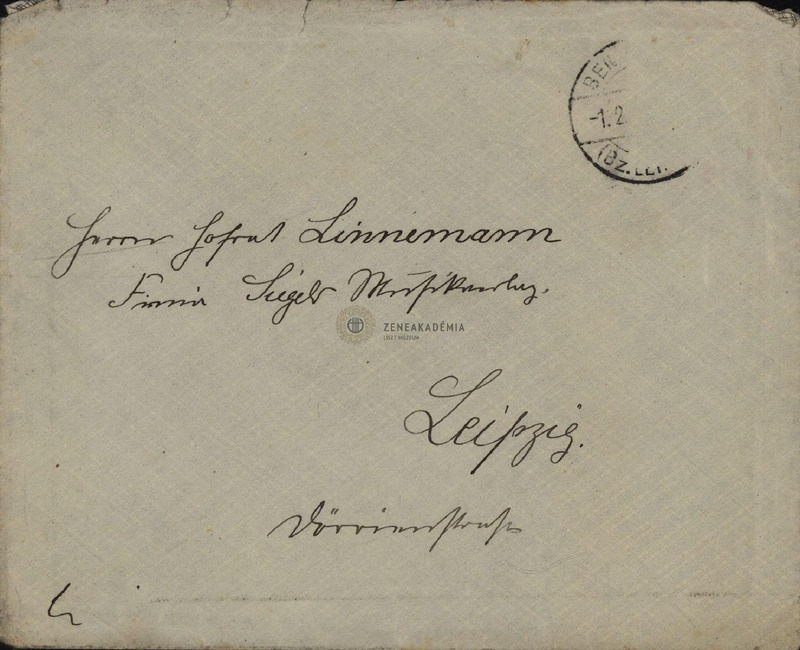 BEN
-1. 2
(Bz. LEI.
Herrn Hofrat Linnemann
Firma Siegels Musikverlag.
ZENEAKADÉMIA
LISZT MÚZEUM
Leipzig.
Dörrienstraße